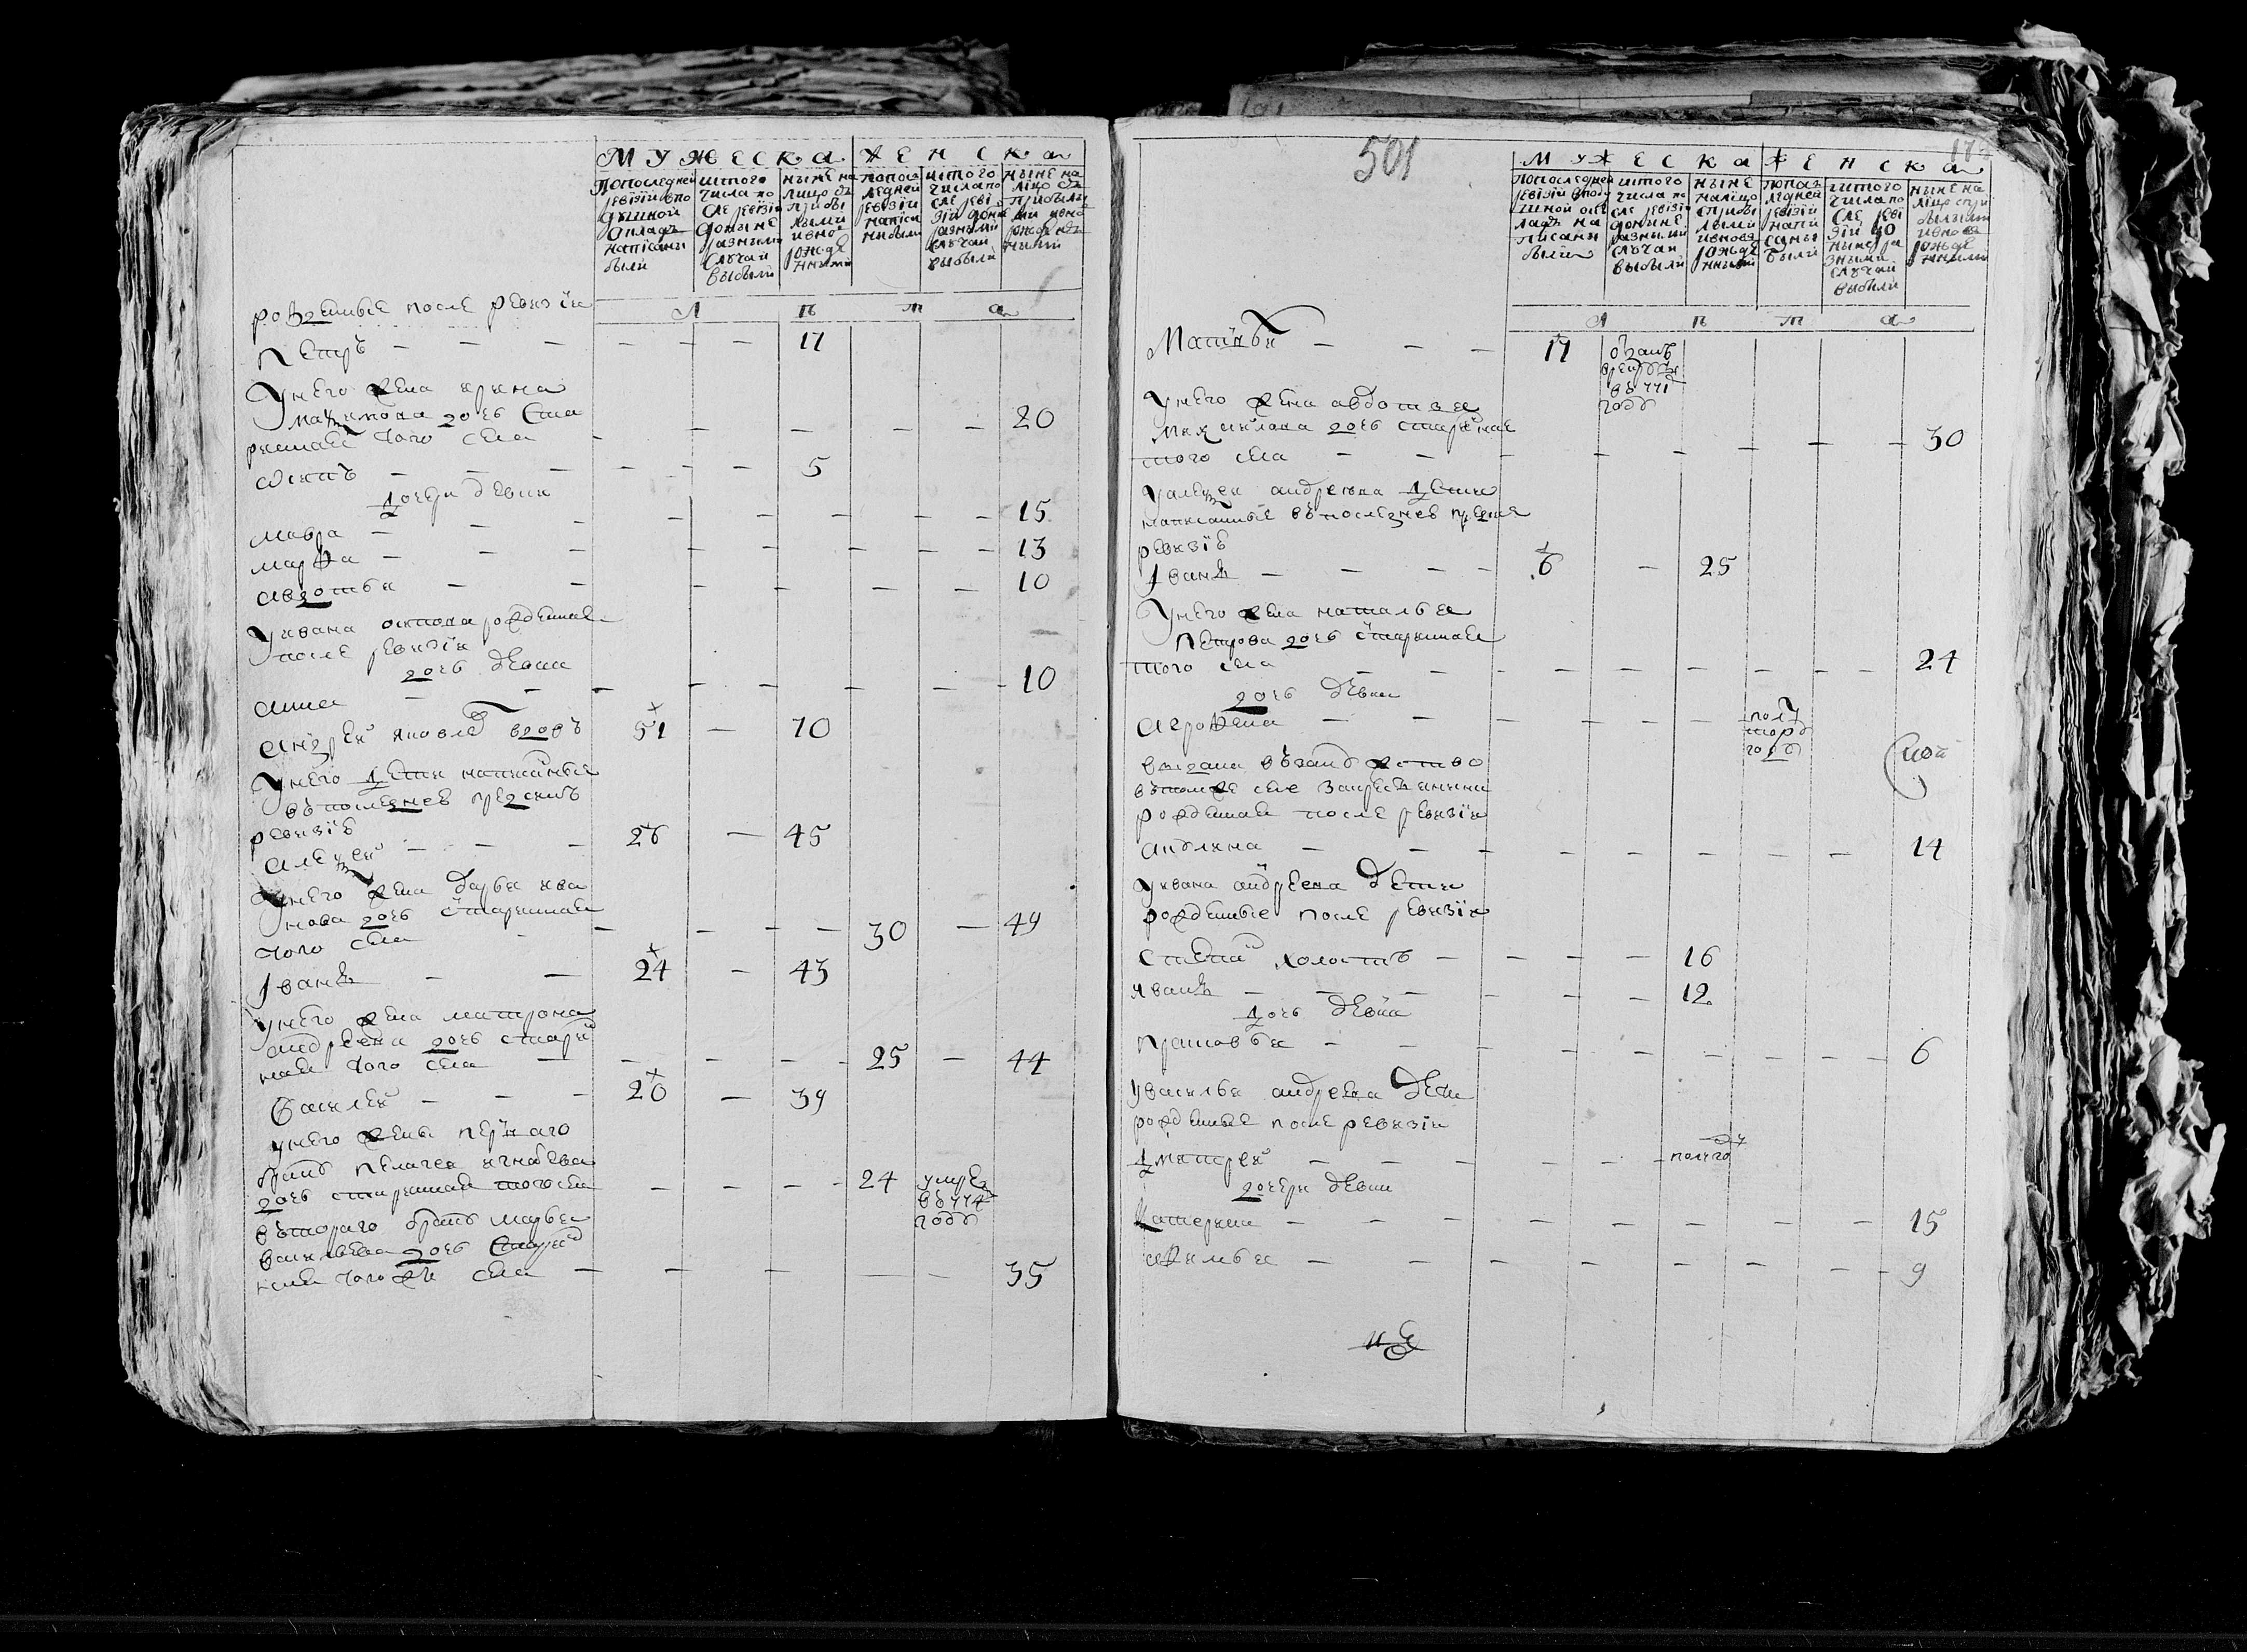 МУЖЕСКА ЖЕНСКА
По последней ревізіи в подушной оклад написаны были
ис того числа после ревізіи до ныне разными случаи выбыли
ныне на лицо с прибылыми и вновь рожденными
по последней ревізіи написаны были
ис того числа после ревізіи до ныне разными случаи выбыли
ныне на лицо с прибылыми и вновь рожденными
Л Ѣ т а
рожденные после ревизіи
Петръ — — — — — — 17
У него жена ирина
дочь ста
риннаго того села — — — — — 20
осипъ — — — — — — 5
дочери девки
мавра — — — — — — — — 15
марфа — — — — — — — — 13
авдотья — — — — — — — 10
У ивана осипова рожденная
после ревизіи
дочь девка
анна — — — — — — — 10
андрей яковлев вдовъ 51 — 70
У него дети написанные
въ последней пред симъ
ревизіѣ
алексей — — — 26 — 45
У него жена дарья ива
нова дочь старинная
того села — — — — — 30 — 49
Іванъ — — 24 — 43
У него жена матрона
андреева дочь старин
ная того села — — — — — 25 — 44
Василей — — — 20 — 39
у него жены перваго
браку пелагея игнатьева
дочь старинная того села — — — — 24 умре въ 774 году
втораго браку марья
васильева дочь старин
ная того ж села — — — — — 35
501
МУЖЕСКА ЖЕНСКА
По последней ревізіи в подушной оклад написаны были
ис того числа после ревізіи до ныне разными случаи выбыли
ныне на лицо с прибылыми и вновь рожденными
по последней ревізіи написаны были
ис того числа после ревізіи до ныне разными случаи выбыли
ныне на лицо с прибылыми и вновь рожденными
Л Ѣ т а
Матвѣй — — — 17 отданъ в рекруты въ 771 году
У него жена авдотья
дочь старинная
того села — — — — — — — 30
У алексея андреева дети
написанные въ последней пред сим
ревизіѣ
Іванъ — — — — 6 — 25
У него жена наталья
Петрова дочь старинная
того села — — — — — — — 24
дочь девка
агрофена — — — — — — полутора году
выдана въ замужство
въ томже селе за крестьянина
рожденная после ревизіи
— — — — — — — — 14
У ивана андреева дети
рожденные после ревизіи
степан холостъ — — — — 16
иванъ — — — — — — 12
дочь девка
прасковья — — — — — — — — 6
У василья андреева дети
рожденные после ревизіи
дмитрей — — — — — полгоду
дочери девки
Катерина — — — — — — — — 15
афимья — — — — — — — — 9